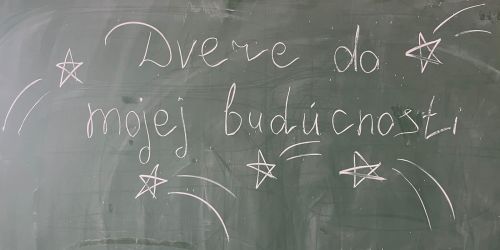 Dvere do
mojej budúcnosti